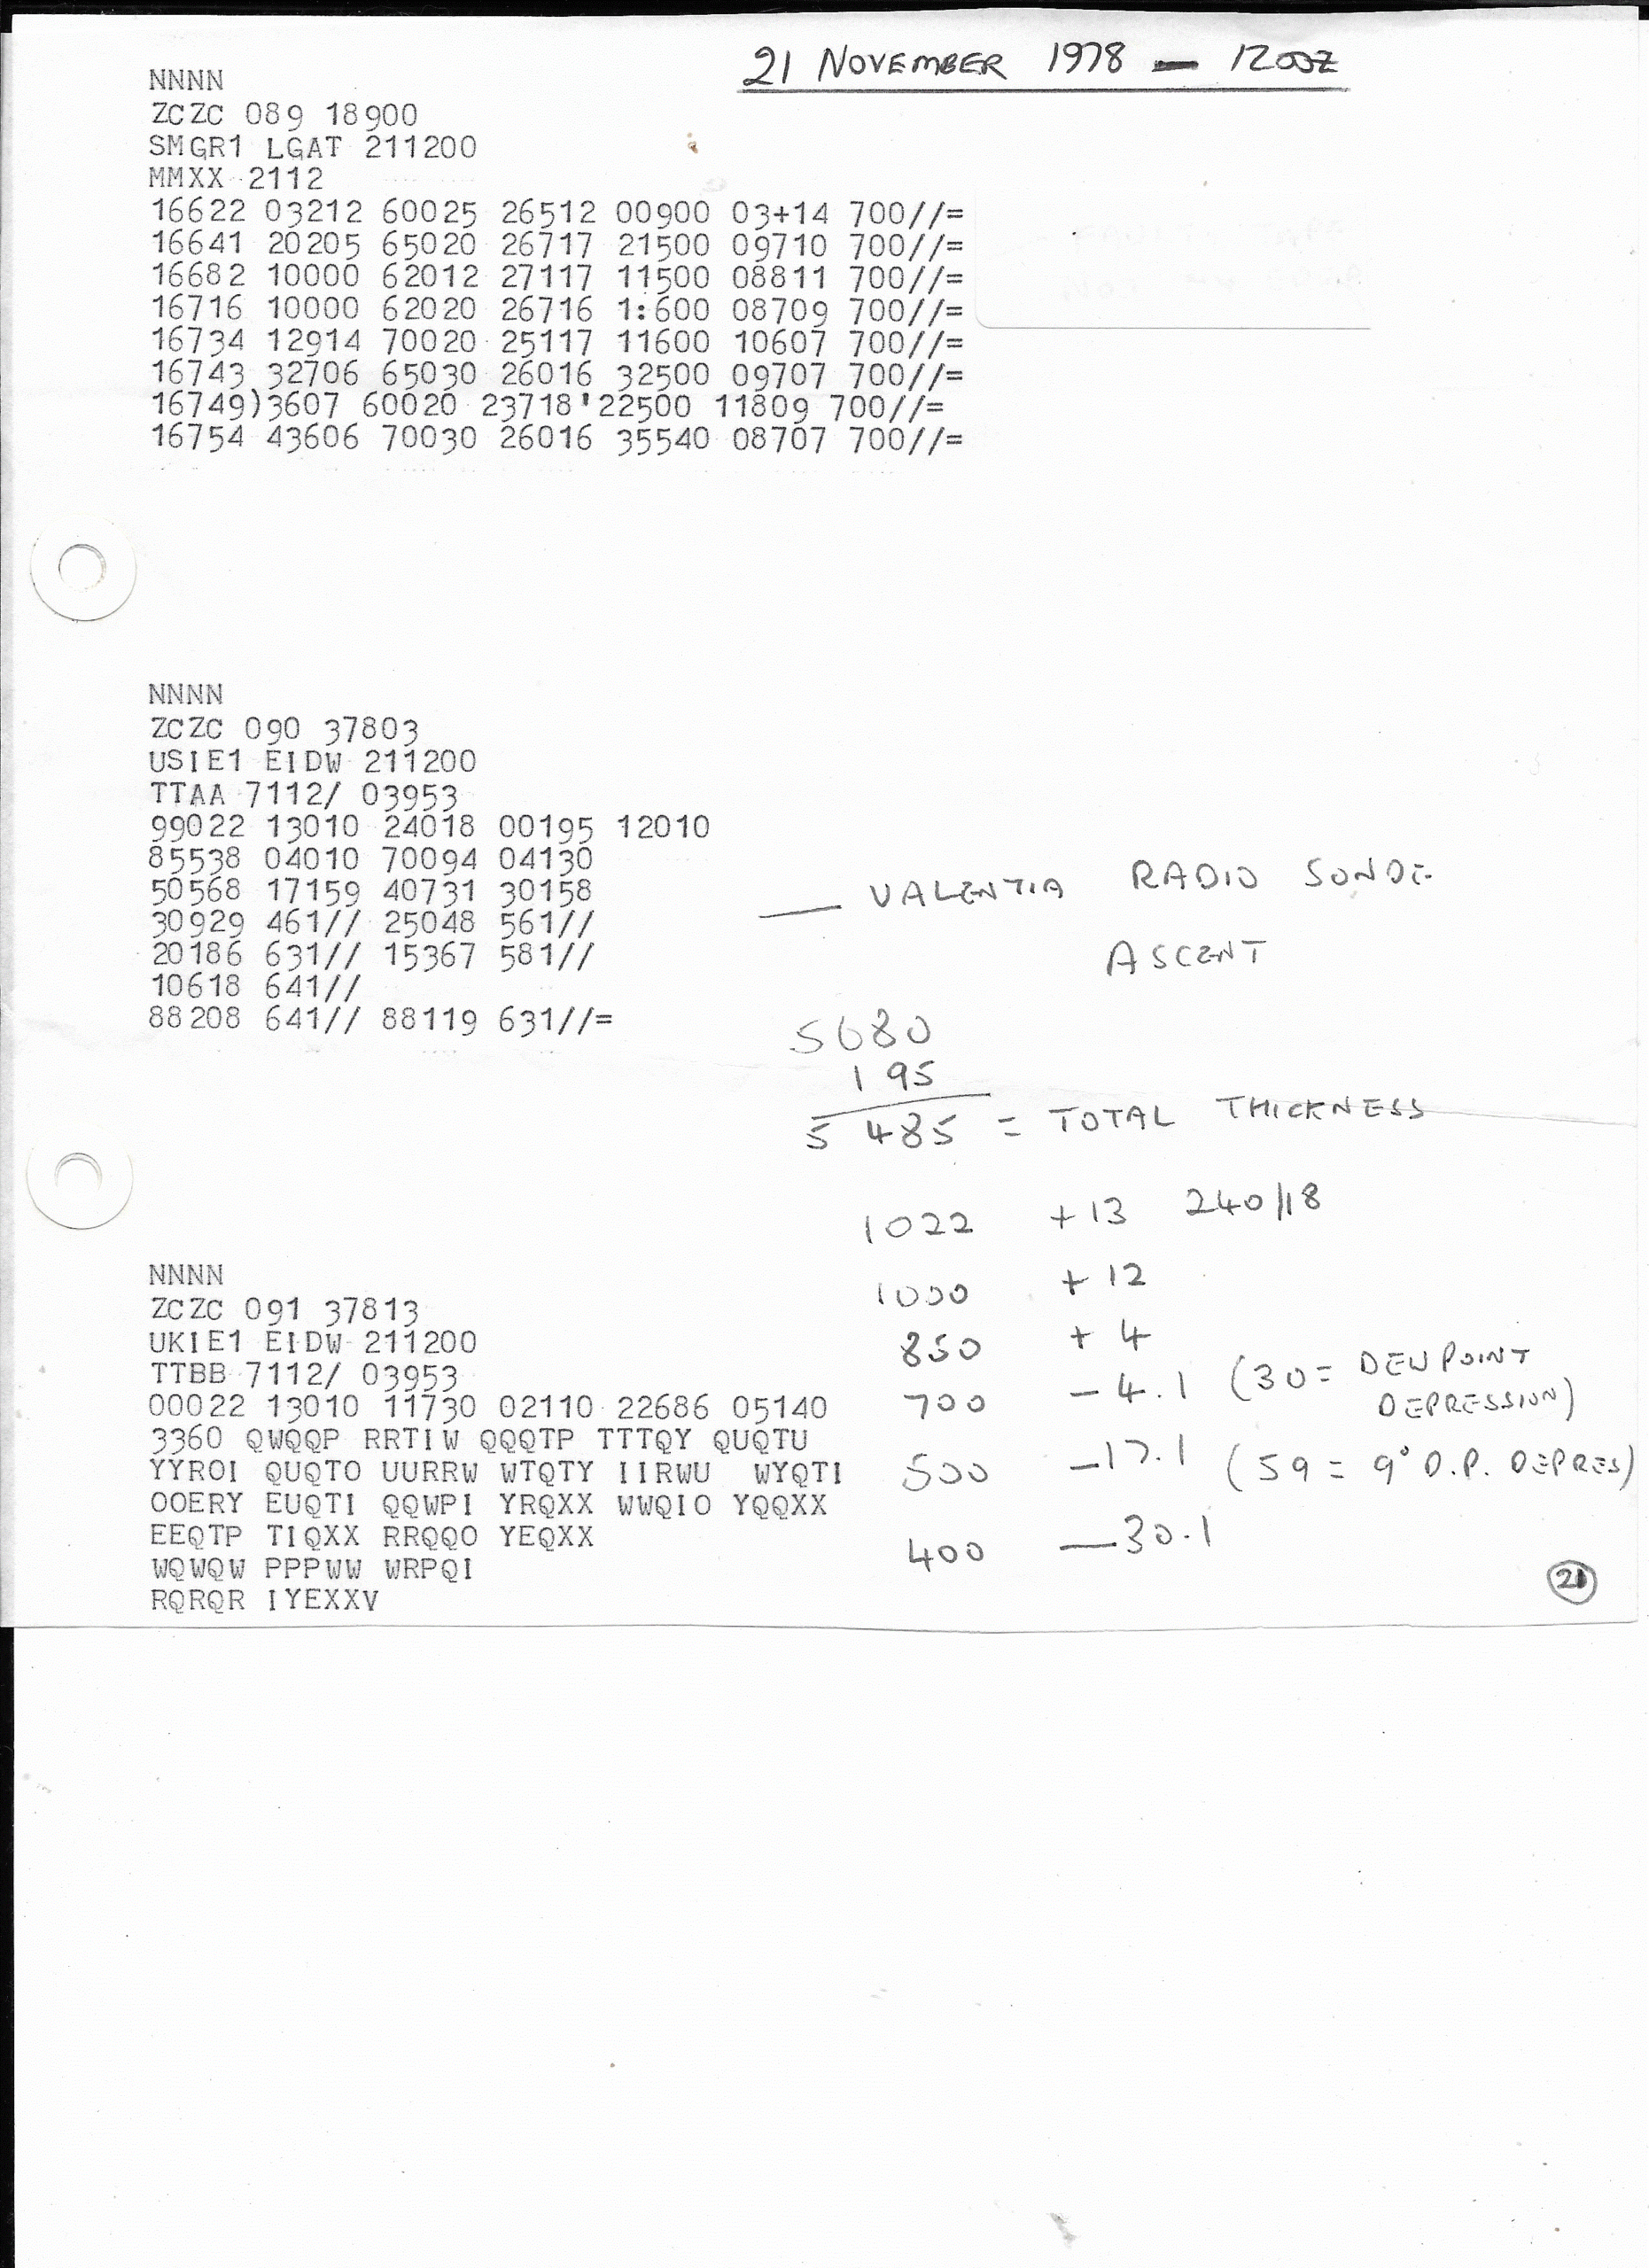 21 NOVEMBER 1978 — 1200Z
NNNN
ZCZC 089 18900
SMGR1 LGAT 211200
MMXX 2112
16622 03212 60025 26512 00900 03+14 700//=
16641 20205 65020 26717 21500 09710 700//=
16682 10000 62012 27117 11500 08811 700//=
16716 10000 62020 26716 1:600 08709 700//=
16734 12914 70020 25117 11600 10607 700//=
16743 32706 65030 26016 32500 09707 700//=
16749)3607 60020 23718'22500 11809 700//=
16754 43606 70030 26016 35540 08707 700//=
NNNN
ZCZC 090 37803
USIE1 EIDW 211200
TTAA 7112/ 03953
99022 13010 24018 00195 12010
85538 04010 70094 04130
50568 17159 40731 30158
30929 461// 25048 561//
20186 631// 15367 581//
10618 641//
88208 641// 88119 631//=
— VALENTIA RADIO SONDE
ASCENT
5680
195
5485 = TOTAL THICKNESS
1022 +13 240/18
1000 +12
850 +4
700 -4.1 (30= DEWPOINT
DEPRESSION)
500 -17.1 (59 = 9° D.P. DEPRES)
400 —30.1
NNNN
ZCZC 091 37813
UKIE1 EIDW 211200
TTBB 7112/ 03953
00022 13010 11730 02110 22686 05140
3360 QWQQP RRTIW QQQTP TTTQY QUQTU
YYROI QUQTO UURRW WTQTY IIRWU WYQTI
OOERY EUQTI QQWPI YRQXX WWQIO YQQXX
EEQTP TIQXX RRQQO YEQXX
WQWQW PPPWW WRPQI
RQRQR IYEXXV
21